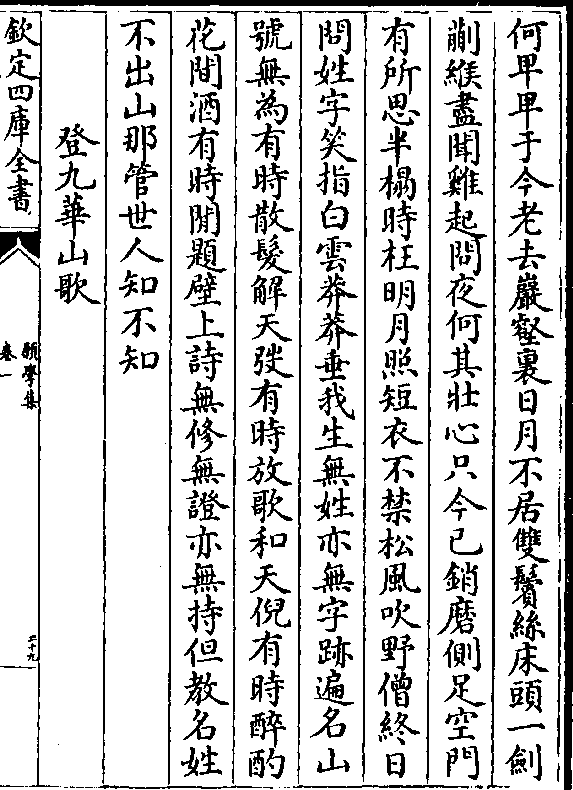 何卑卑于今老去巖壑裏日月不居雙鬢絲床頭一劍
蒯緱盡聞雞起問夜何其壯心只今已銷磨側足空門
有所思半榻時枉明月照短衣不禁松風吹野僧終日
問姓字笑指白雲莽莽垂我生無姓亦無字跡遍名山
號無為有時散髮解天弢有時放歌和天倪有時醉酌
花間酒有時閒題壁上詩無修無證亦無持但教名姓
不出山那管世人知不知
登九華山歌
欽定四庫全書
類學集
卷一
二十九